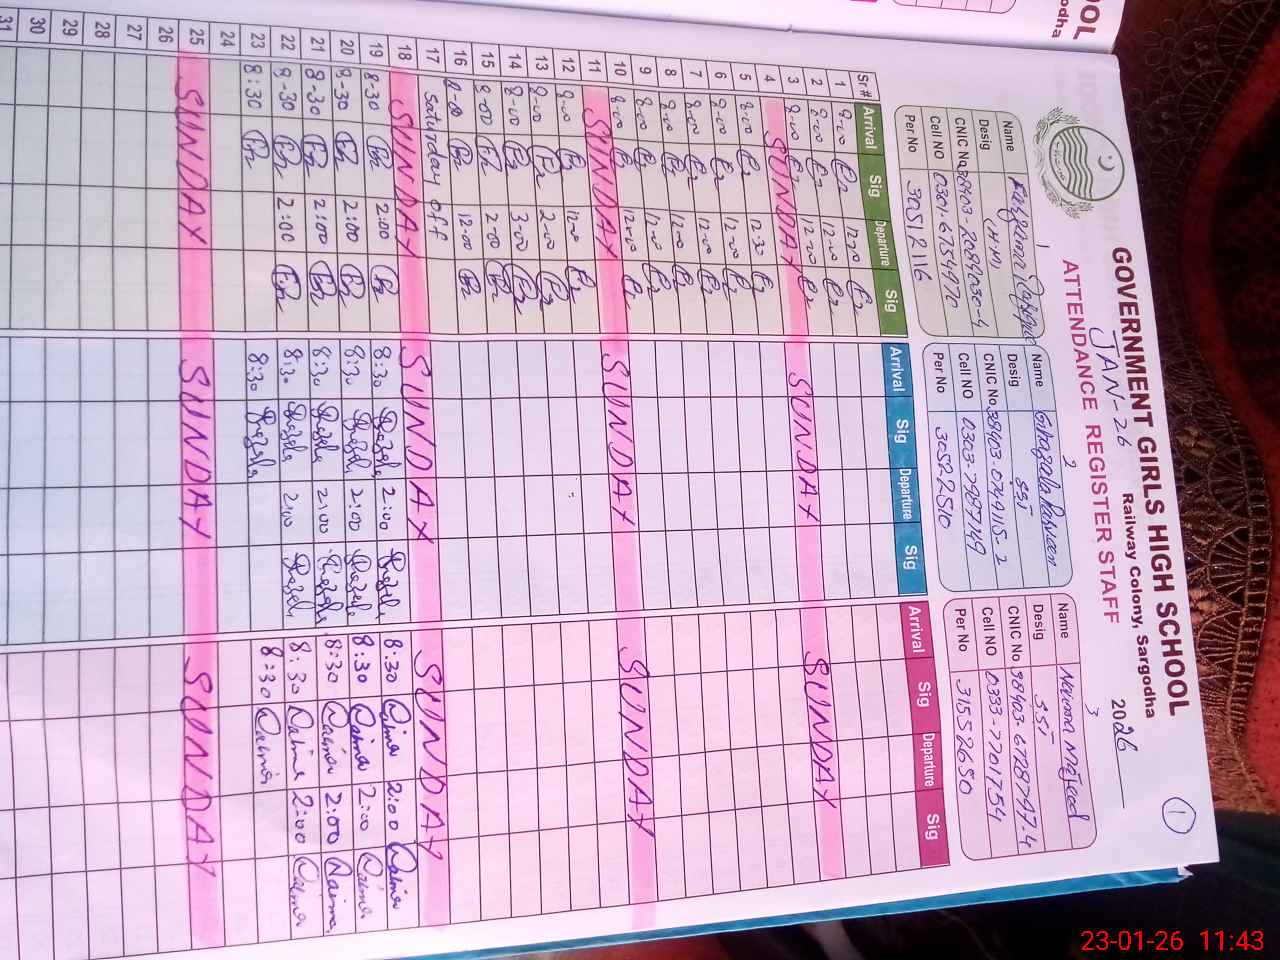 GOVERNMENT GIRLS HIGH SCHOOL
Railway Colony, Sargodha
JAN-26
2026
ATTENDANCE REGISTER STAFF
1
1
Name
Desig (H.M)
CNIC No
Cell NO 0301-6754970
Per No 30512116
2
Name Ghazala Parveen
Desig SST
CNIC No 38403-0749115-2
Cell NO 0303-7987149
Per No 30522510
3
Name Naima Majeed
Desig SST
CNIC No 38403-6728797-4
Cell NO 0333-7701754
Per No 31552650
Sr# Arrival Sig Departure Sig Arrival Sig Departure Sig Arrival Sig Departure Sig
1 9-00 12-00
2 8-00 12-00
3 9-00 12-00
4 SUNDAY SUNDAY SUNDAY
5 8-00 12-30
6 9-00 12-00
7 8-00 12-00
8 9-00 12-00
9 8-00 12-00
10 8-00 12-00
11 SUNDAY SUNDAY SUNDAY
12 9-00 12-00
13 9-00 2-00
14 8-00 3-00
15 8-00 2-00
16 8-00 12-00
17 Saturday off
18 SUNDAY SUNDAY SUNDAY
19 8-30 2:00 8:30 2:00 8:30 Naima 2:00 Naima
20 8-30 2:00 8:30 2:00 8:30 Naima 2:00 Naima
21 8-30 2:00 8:30 2:00 8:30 Naima 2:00 Naima
22 8-30 2:00 8:30 2:00 8:30 Naima 2:00 Naima
23 8:30 8:30 8:30 Naima
24
25 SUNDAY SUNDAY SUNDAY
26
27
28
29
30
31
OOL
odha
23-01-26 11:43